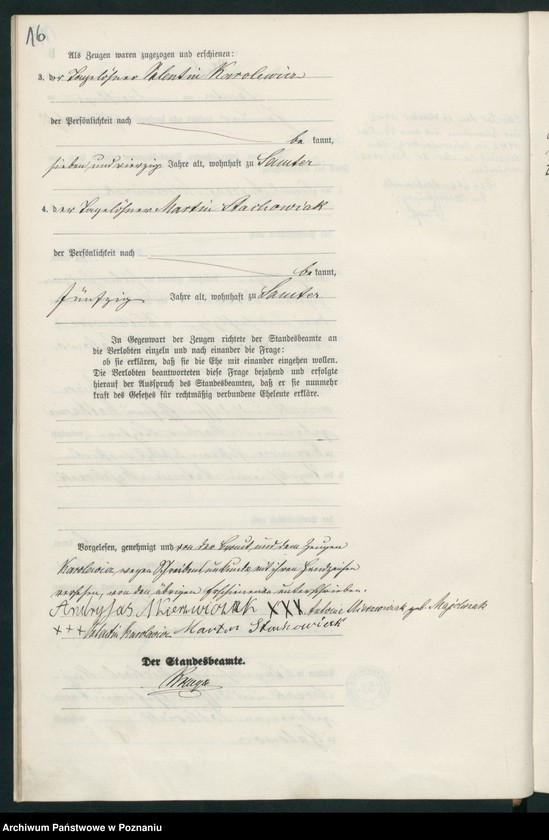 16
Als Zeugen waren zugezogen und erschienen:
3. der Tagelöhner Valentin Karolewicz
der Persönlichkeit nach
bekannt,
sieben und vierzig Jahre alt, wohnhaft zu Samter
4. der Tagelöhner Martin Stachowiak
der Persönlichkeit nach
bekannt,
fünfzig Jahre alt, wohnhaft zu Samter
In Gegenwart der Zeugen richtete der Standesbeamte an
die Verlobten einzeln und nach einander die Frage:
ob sie erklären, daß sie die Ehe mit einander eingehen wollen.
Die Verlobten beantworteten diese Frage bejahend und erfolgte
hierauf der Ausspruch des Standesbeamten, daß er sie nunmehr
kraft des Gesetzes für rechtmäßig verbundene Eheleute erkläre.
Vorgelesen, genehmigt und von der Braut und dem Zeugen
Karolewicz wegen Schreibensunkunde mit ihren Handzeichen
versehen, von den übrigen Erschienenen unterschrieben.
XXX geb.
+++ Valentin Karolewicz Martin Stachowiak
Der Standesbeamte.
Archiwum Państwowe w Poznaniu
szukajwarchiwach.pl